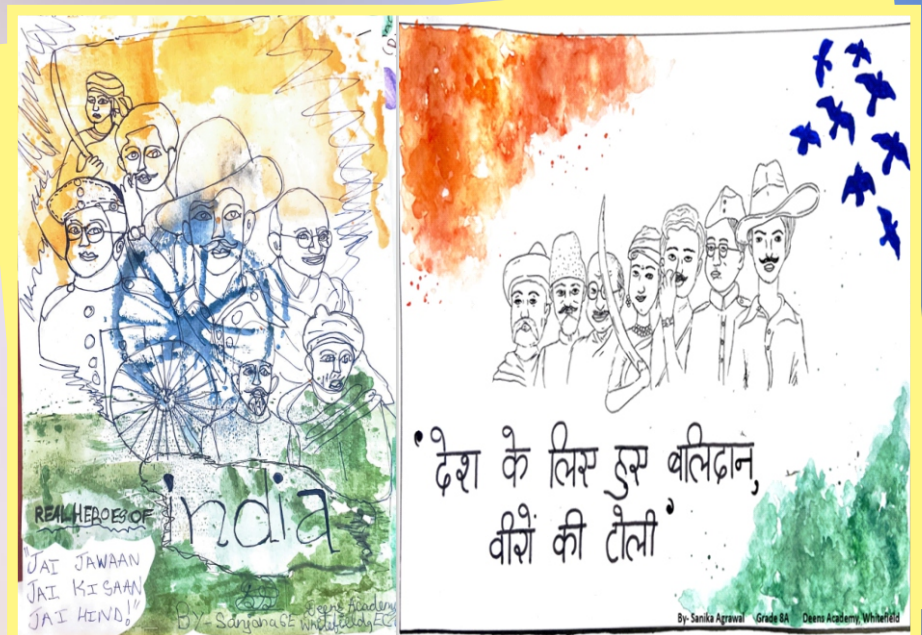 REAL HEROES OF
india
"JAI JAWAAN
JAI KISAAN
JAI HIND!"
BY- Sanjana 6E
Deens Academy
'देश के लिए हुए बलिदान,
वीरों की टोली'
By- Sanika Agrawal Grade 8A Deens Academy, Whitefield